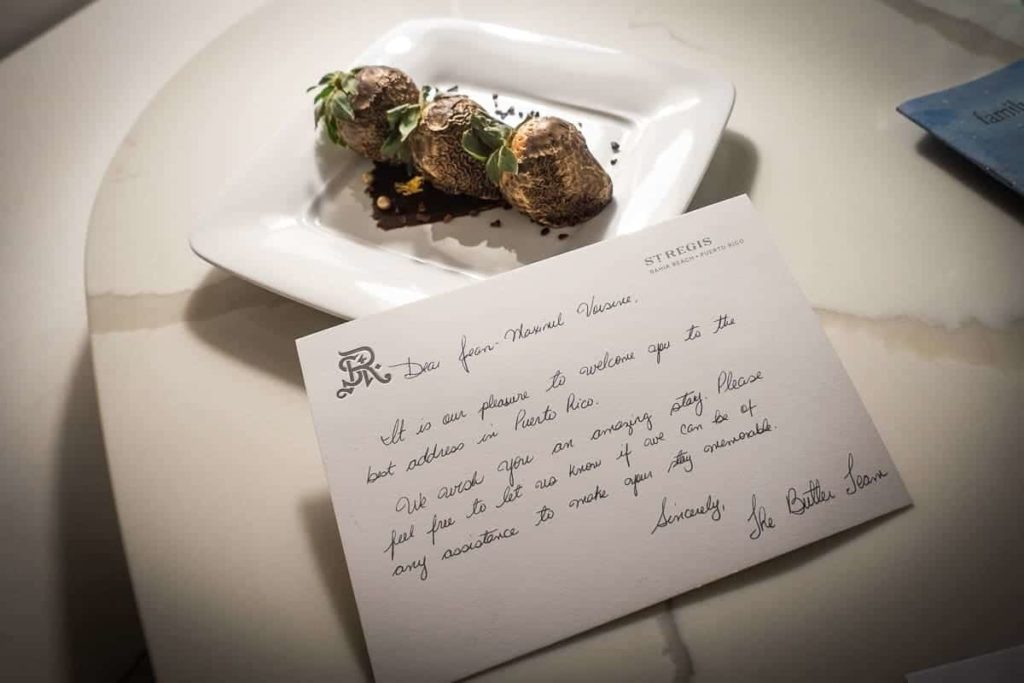 family
ST REGIS
BAHIA BEACH • PUERTO RICO
R
Dear Jean-Maximil Voisine,
It is our pleasure to welcome you to the
best address in Puerto Rico.
We wish you an amazing stay. Please
feel free to let us know if we can be of
any assistance to make your stay memorable.
Sincerely,
The Butler Team